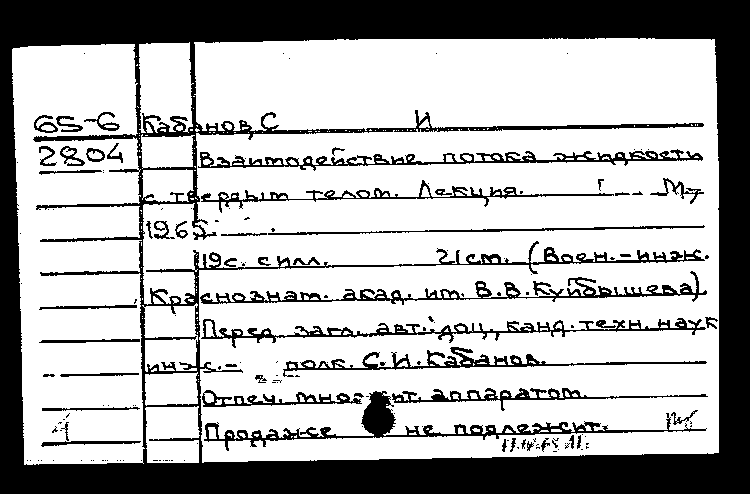 65-6 Кабанов, С И
2804 Взаимодействие потока жидкости
с твердым телом. Лекция. М.,
1965.
19с. с илл. 21см. (Воен.-инж.
Краснознам. акад. им. В.В.Куйбышева).
Перед загл. авт.: доц., канд. техн. наук
инж.- полк. С.И.Кабанов.
Отпеч. множит. аппаратом.
Продаже не подлежит.